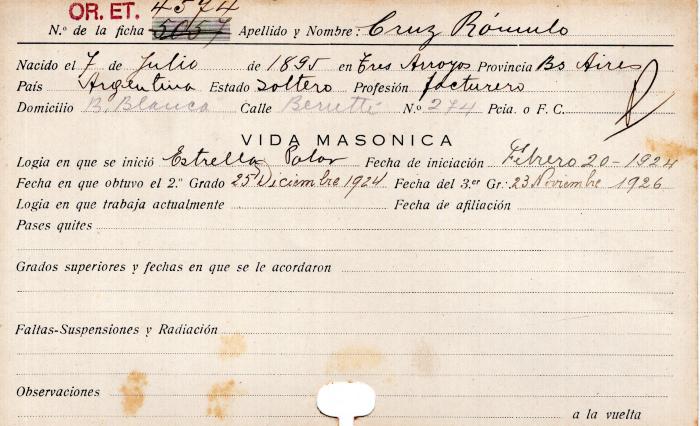 OR. ET. 4574
N.º de la ficha 5057 Apellido y Nombre: Cruz Rómulo
Nacido el 7 de Julio de 1895 en Tres Arroyos Provincia Bs Aires
País Argentina Estado soltero Profesión facturero
Domicilio B. Blanca Calle Berutti N.º 274 Pcia. o F. C.
VIDA MASONICA
Logia en que se inició Estrella Polar Fecha de iniciación Febrero 20-1924
Fecha en que obtuvo el 2.º Grado 25 Diciembre 1924 Fecha del 3.er Gr.: 23 Noviembre 1926
Logia en que trabaja actualmente Fecha de afiliación
Pases quites
Grados superiores y fechas en que se le acordaron
Faltas-Suspensiones y Radiación
Observaciones
a la vuelta